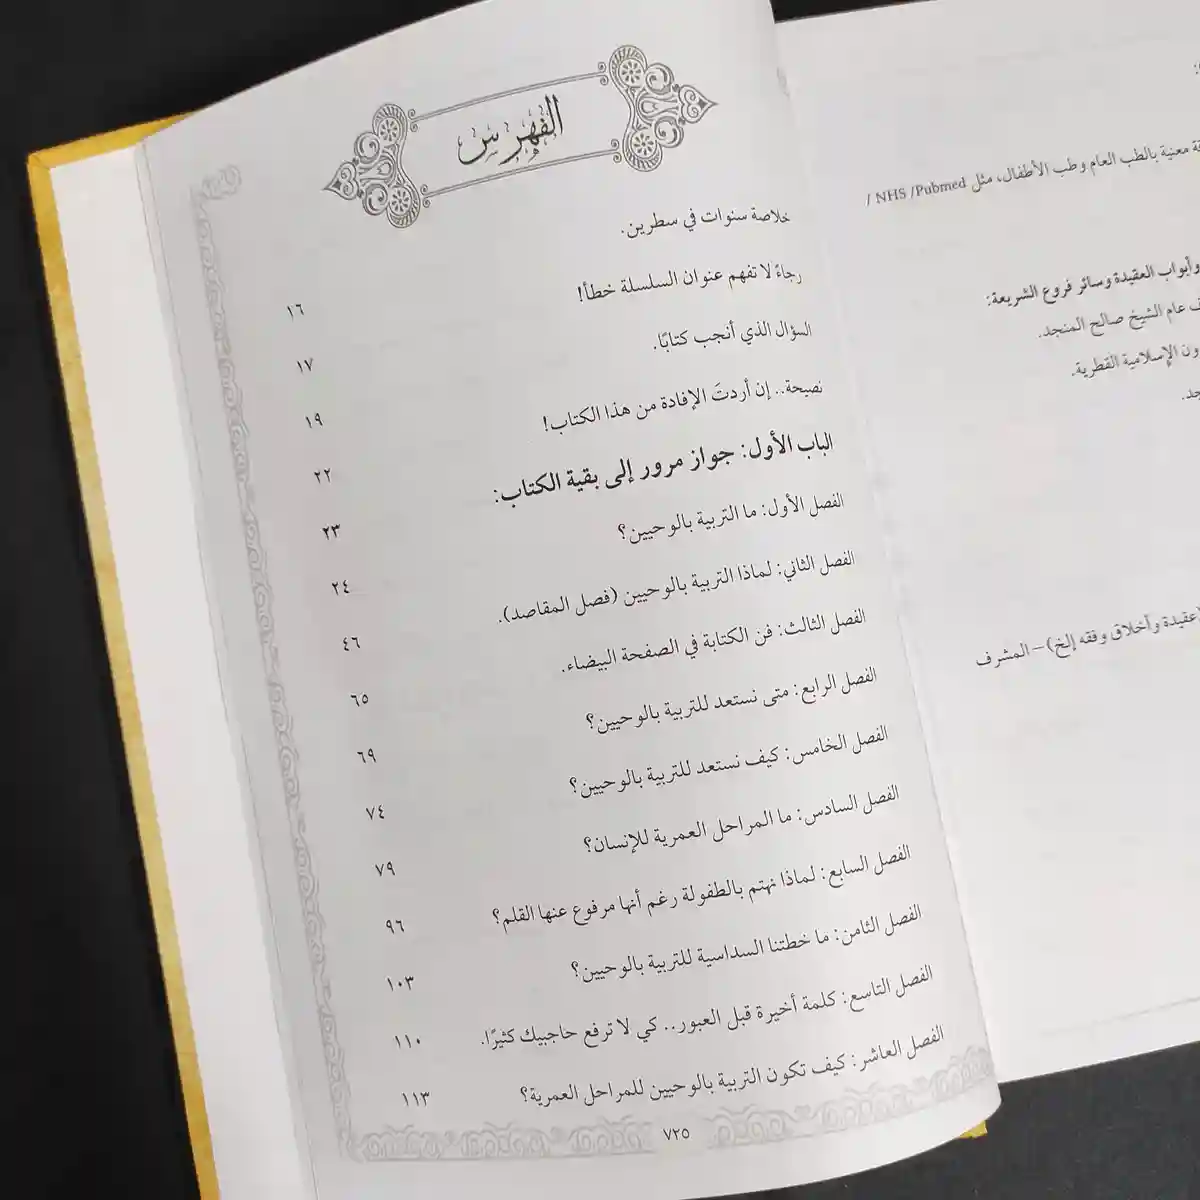 الفهرس
خلاصة سنوات في سطرين. ١٦
رجاءً لا تفهم عنوان السلسلة خطأ! ١٧
السؤال الذي أنجب كتابًا. ١٩
نصيحة.. إن أردتَ الإفادة من هذا الكتاب! ٢٢
الباب الأول: جواز مرور إلى بقية الكتاب: ٢٣
الفصل الأول: ما التربية بالوحيين؟ ٢٤
الفصل الثاني: لماذا التربية بالوحيين (فصل المقاصد). ٤٦
الفصل الثالث: فن الكتابة في الصفحة البيضاء. ٦٥
الفصل الرابع: متى نستعد للتربية بالوحيين؟ ٦٩
الفصل الخامس: كيف نستعد للتربية بالوحيين؟ ٧٤
الفصل السادس: ما المراحل العمرية للإنسان؟ ٧٩
الفصل السابع: لماذا نهتم بالطفولة رغم أنها مرفوع عنها القلم؟ ٩٦
الفصل الثامن: ما خطتنا السداسية للتربية بالوحيين؟ ١٠٣
الفصل التاسع: كلمة أخيرة قبل العبور.. كي لا ترفع حاجبيك كثيرًا. ١١٠
الفصل العاشر: كيف تكون التربية بالوحيين للمراحل العمرية؟ ١١٣
٧٢٥
معنية بالطب العام وطب الأطفال، مثل NHS /Pubmed /
وأبواب العقيدة وسائر فروع الشريعة:
عام الشيخ صالح المنجد.
الإسلامية القطرية.
عقيدة وأخلاق وفقه إلخ) – المشرف